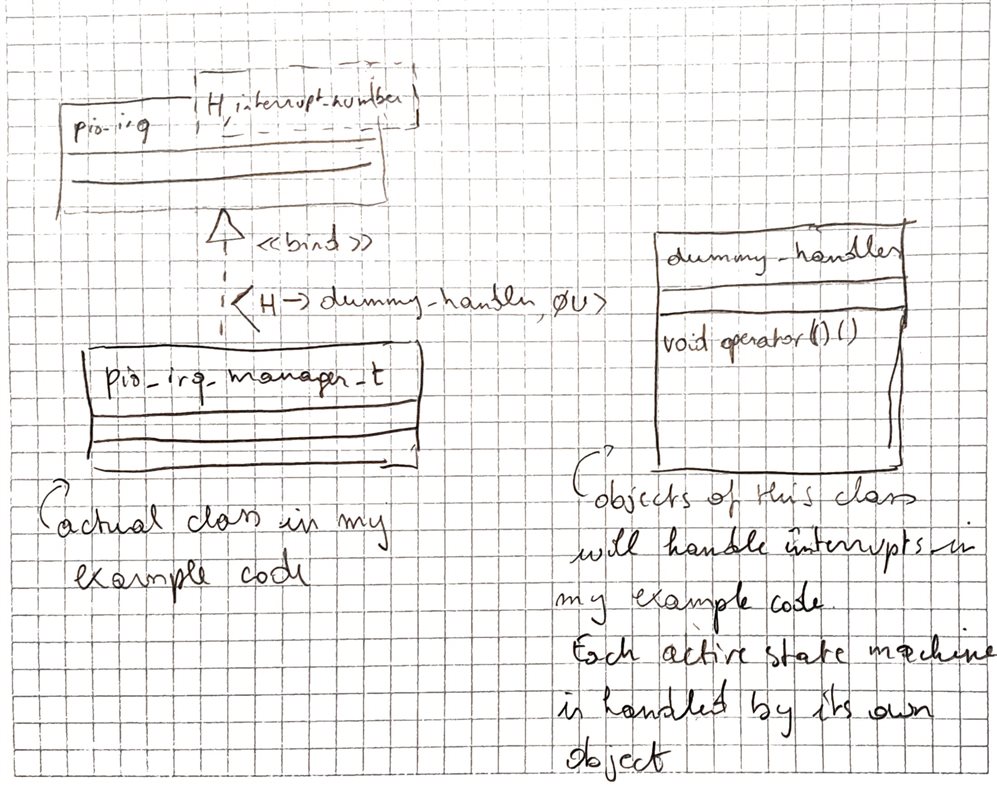 H, interrupt_number
pio_irq
<<bind>>
<H -> dummy_handler, 0U>
pio_irq_manager_t
actual class in my
example code
dummy_handler
void operator()()
objects of this class
will handle interrupts in
my example code.
Each active state machine
is handled by its own
object